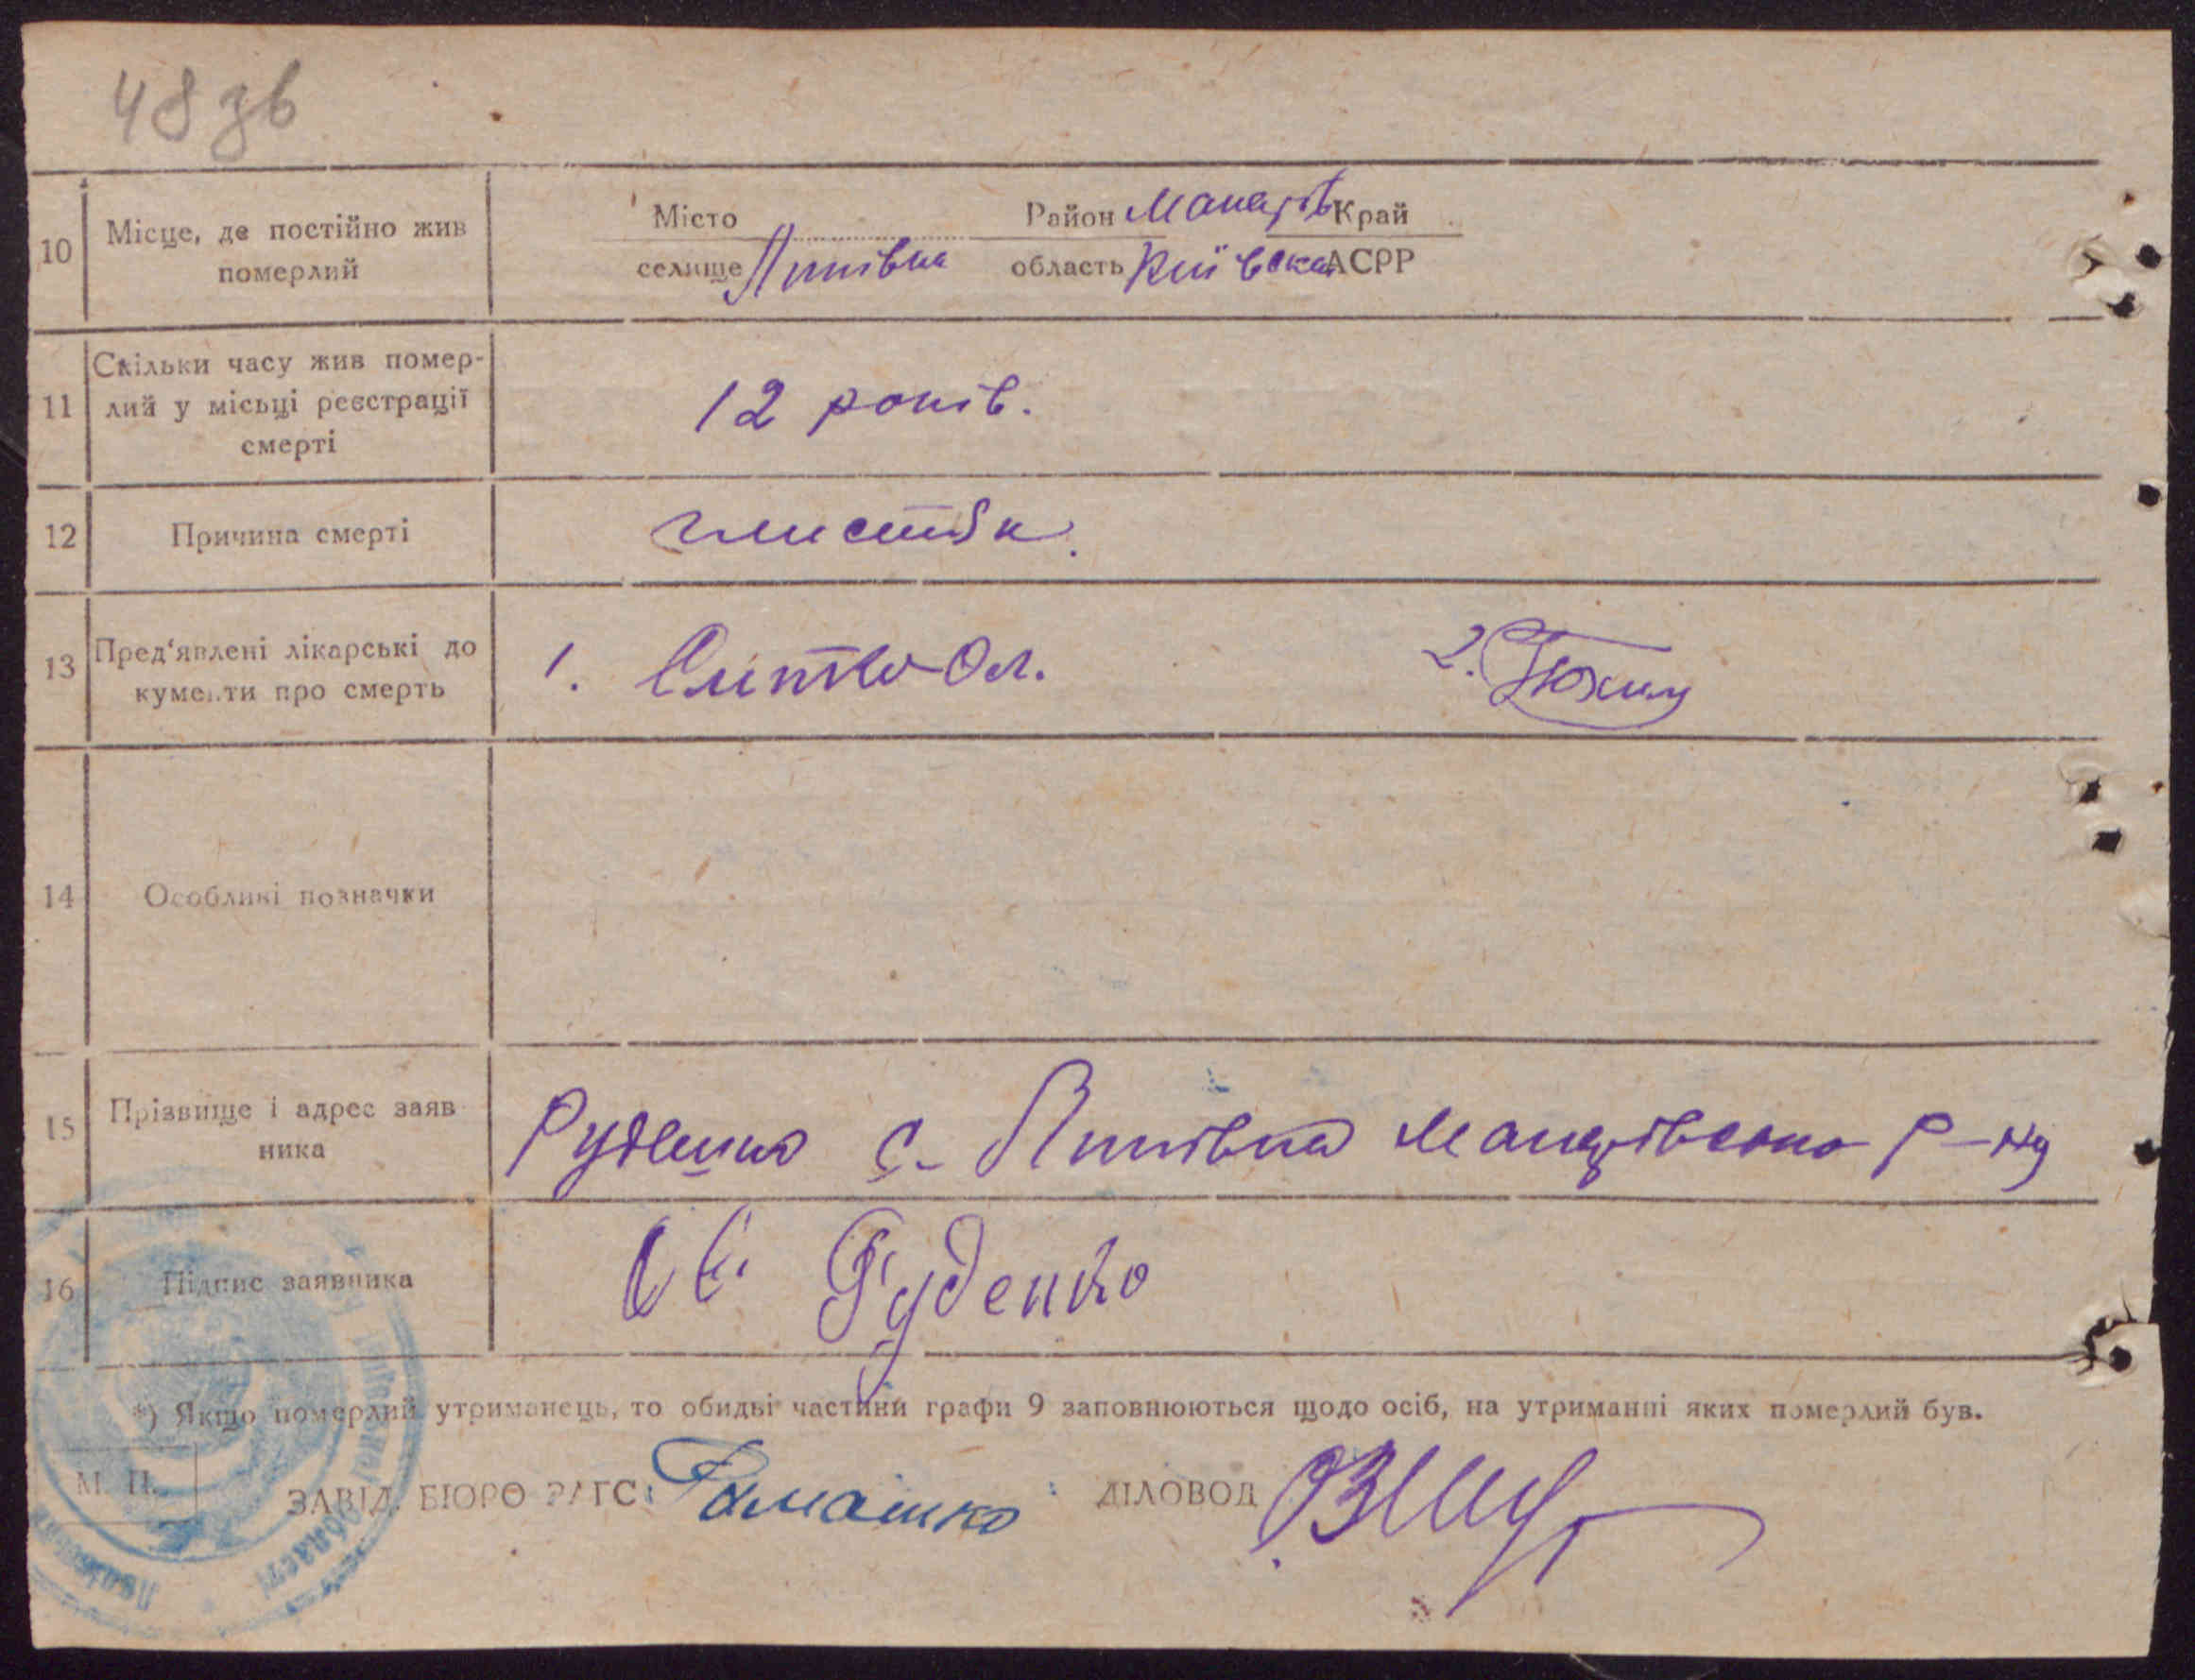 48 зв
Місто Район Макарів Край
10 Місце, де постійно жив
померлий
селище Липівка область Київська АСРР
11 Скільки часу жив помер-
лий у місьці реєстрації
смерті
12 років.
12 Причина смерті
13 Пред'явлені лікарські до
кументи про смерть
1. Ол. 2.
14 Особливі позначки
15 Прізвище і адрес заяв-
ника
Руденко с. Липівка Макарівсько р-ну
16 Підпис заявника
Руденко
*) Якщо померлий утриманець, то обидві частини графи 9 заповнюються щодо осіб, на утриманні яких померлий був.
М. П.
ЗАВІД. БЮРО РАГС: Ромашко ДІЛОВОД